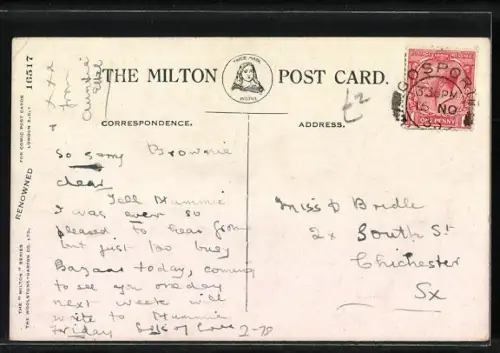 THE MILTON POST CARD.
TRADE MARK
MILTON
CORRESPONDENCE.
ADDRESS.
GOSPORT
3 PM
15 NO
ONE PENNY
£2
So sorry Brownie
dear
Tell Mummie
I was ever so
pleased to hear from
but just too busy
Bazaar today, coming
to see you one day
next week will
write to Mummie
Friday
Miss D Bridle
2x South St
Chichester
Sx
xxx
from
Auntie
Ethel
THE "MILTON" SERIES
THE WOOLSTONE BROS.
RENOWNED
FOR COMIC POST CARDS
LONDON E.C.1
16517